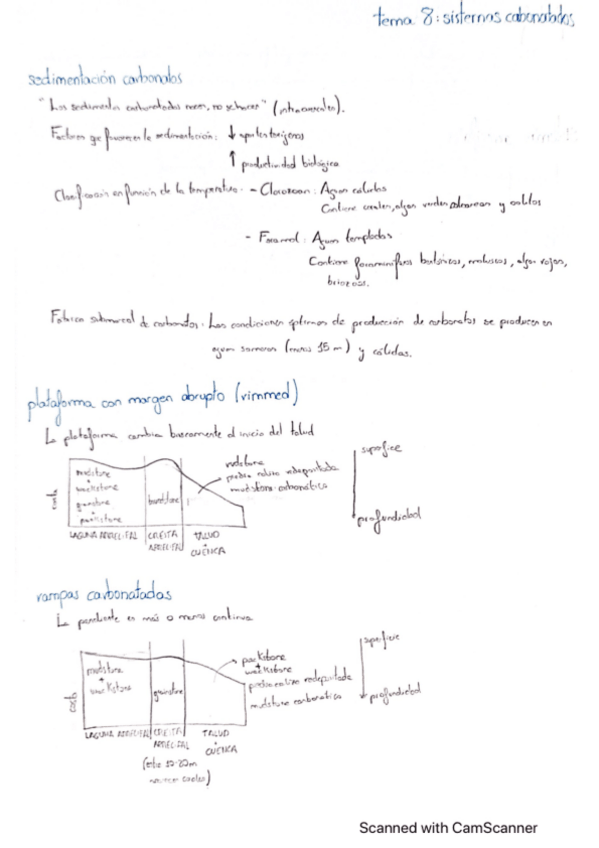 tema 8: sistemas cabonatados
sedimentación carbonatos
"Los sedimentos carbonatados nacen, no se hacen" (intracuencales).
Factores qe favorecen la sedimentación: ↓ aportes terrígenos
↑ productividad biológica
Clasificación en función de la temperatura - Clorozoan: Aguas cálidas
Contiene corales, algas verdes calcareas y oolitos
- Foramol: Aguas templadas
Contiene foraminíferos bentónicos, moluscos, algas rojas,
briozoos.
de carbonatos. Las condiciones óptimas de producción de carbonatos se producen en
aguas someras (menos 15 m) y cálidas.
plataforma con margen abrupto (rimmed)
La plataforma cambia bruscamente al inicio del talud
mudstone
wackstone
grainstone
packstone
boundstone
rudstone
redepositada
mudstone carbonática
superfice
profundidad
costa
LAGUNA ARRECIFAL
CRESTA ARRECIFAL
TALUD
CUENCA
rampas carbonatadas
La pendiente es más o menos continua
mudstone
wackstone
grainstone
packstone
wackstone
redepositada
mudstone carbonática
superficie
profundidad
costa
LAGUNA ARRECIFAL
CRESTA ARRECIFAL
TALUD
CUENCA
Scanned with CamScanner